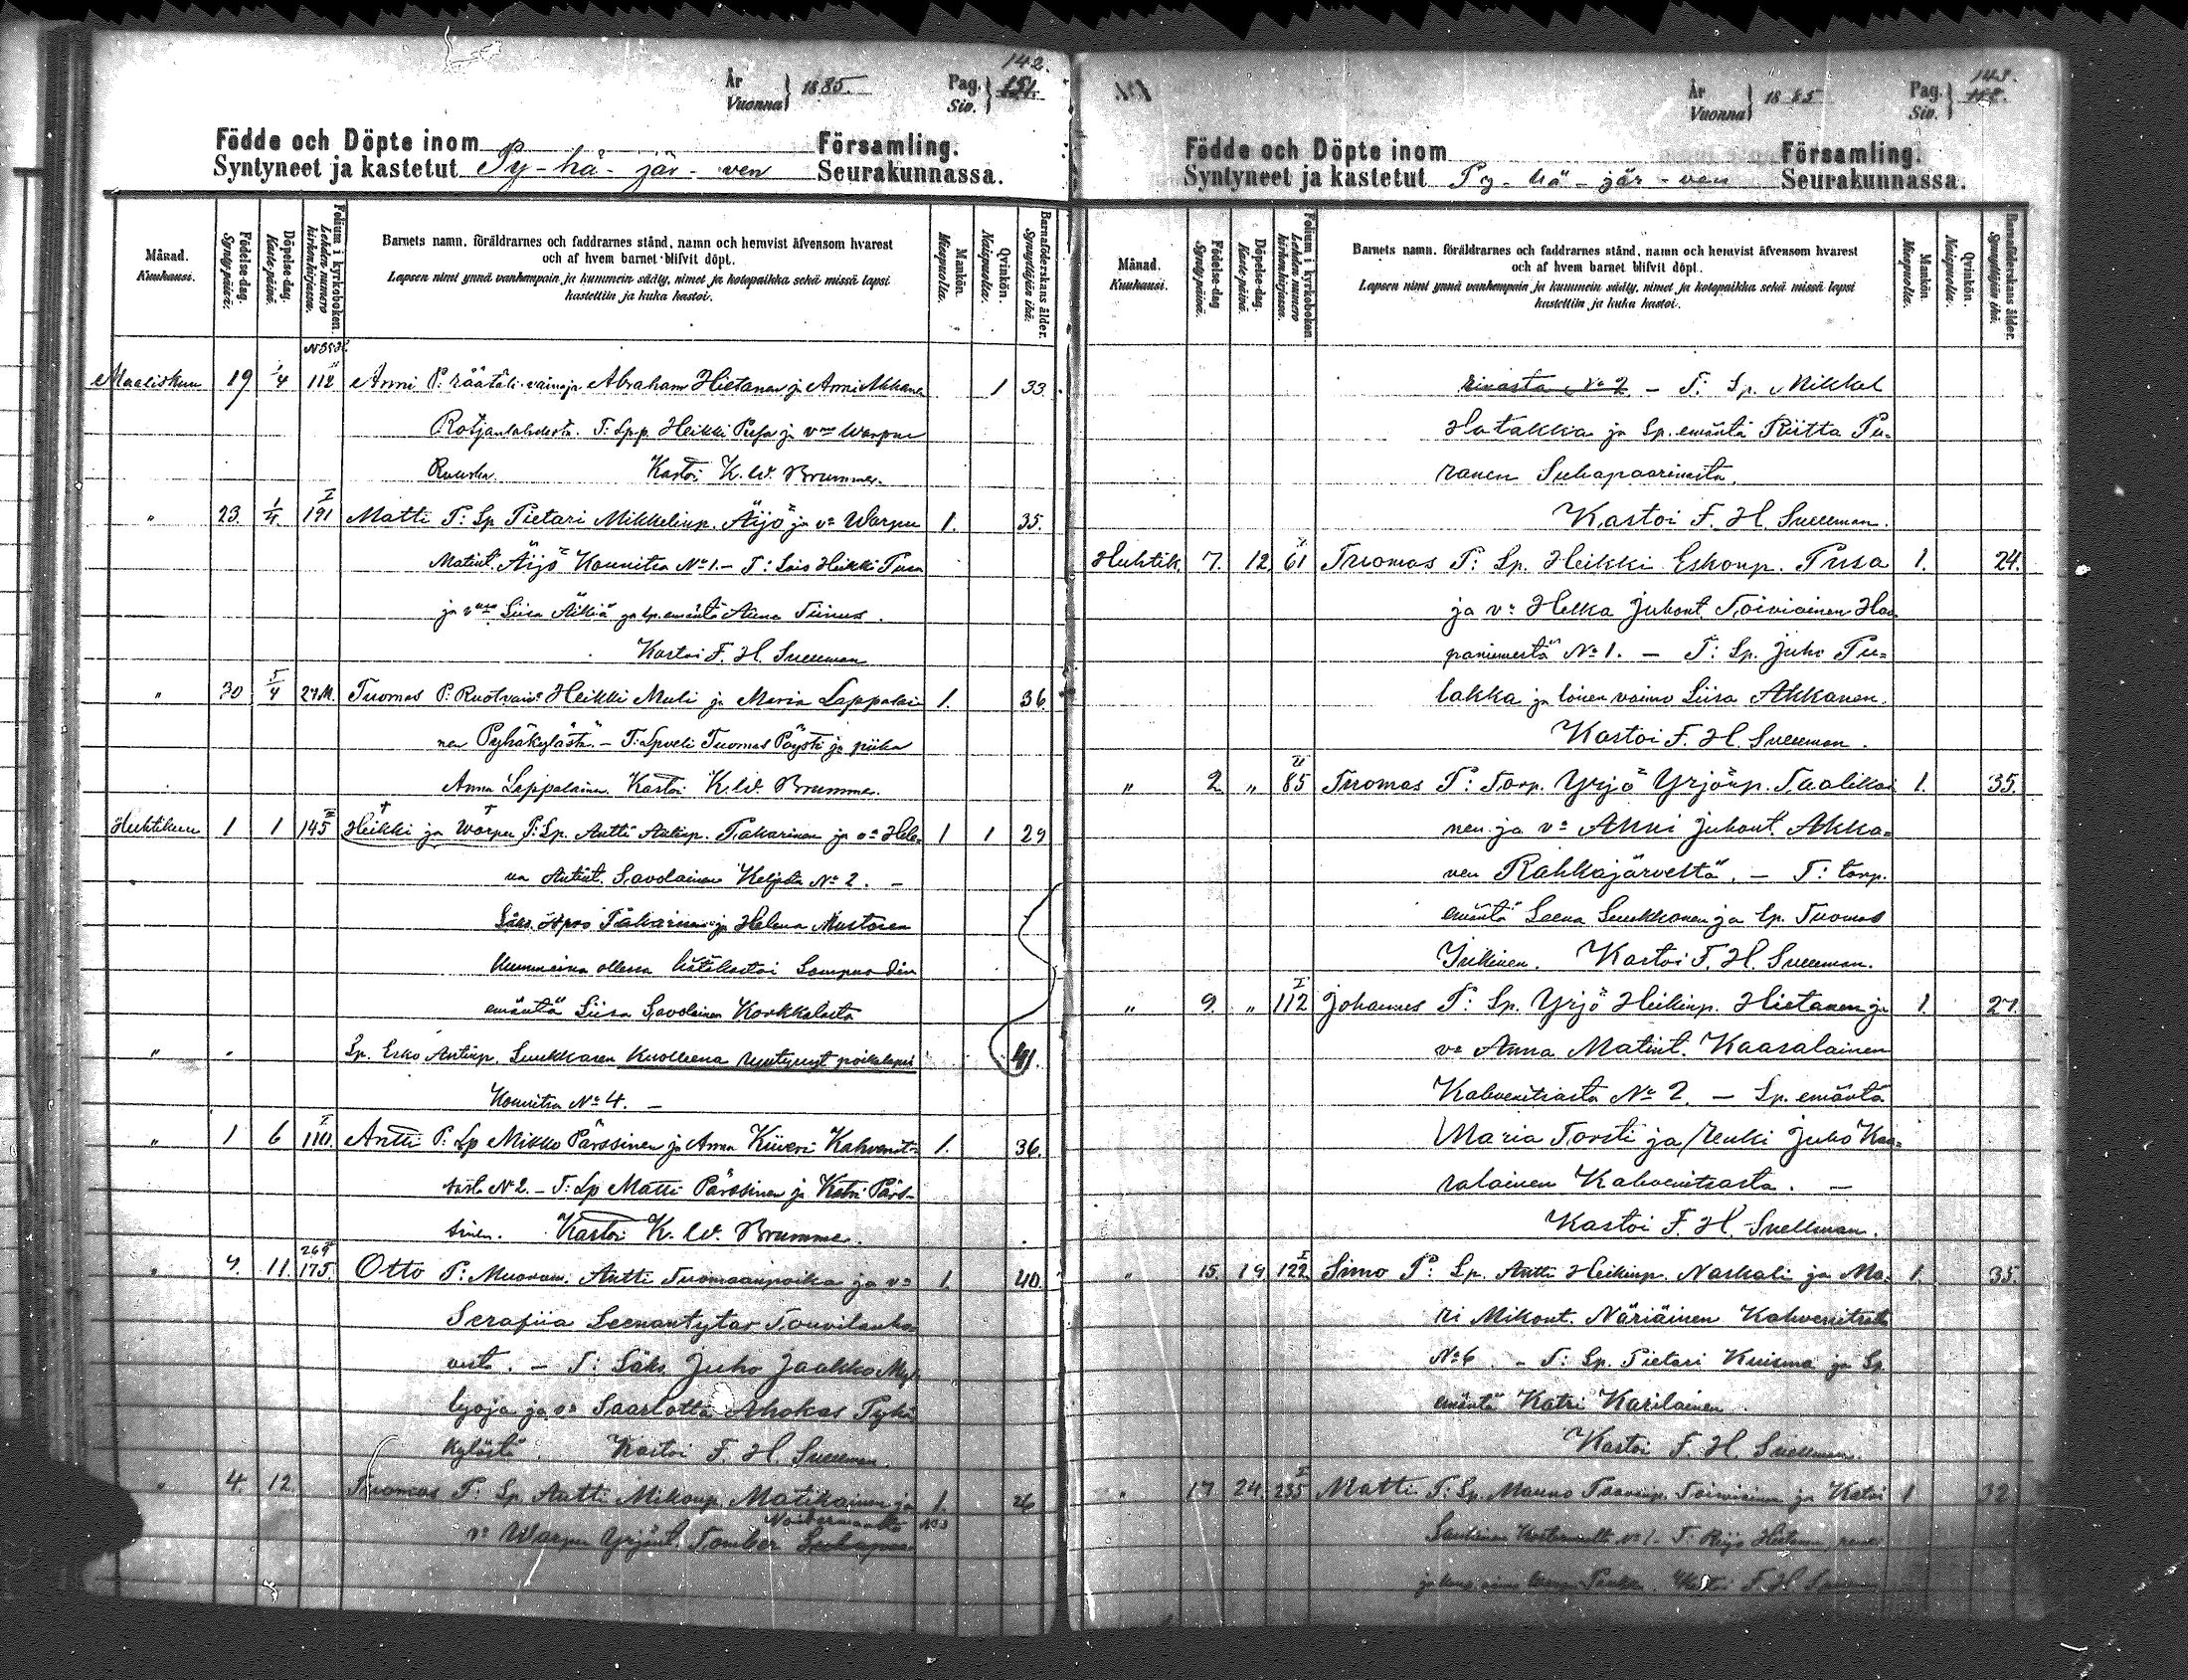 142.
År Vuonna } 1885. Pag. Siv. } 151.
Födde och Döpte inom Församling.
Syntyneet ja kastetut Py-hä-jär-ven Seurakunnassa.
Månad. Kuukausi.
Födelse-dag. Syntypäivä.
Döpelse-dag. Kaste-päivä.
Folium i kyrkoboken. Lehden numero kirkonkirjassa.
Barnets namn, föräldrarnes och faddrarnes stånd, namn och hemvist äfvensom hvarest
och af hvem barnet blifvit döpt.
Lapsen nimi ynnä vanhempain ja kummein sääty, nimet ja kotopaikka sekä missä lapsi
kastettiin ja kuka kastoi.
Mankön. Miespuolia.
Qvinkön. Naispuolia.
Barnaföderskans ålder. Synnyttäjän ikä.
Maaliskuu 19 1/4 112 Anni V: räätäli vaimoja Abraham Hietanen ja Anni Akkanen 1 33.
T: Lpp. Heikki Pusa ja v:mo Warpu
Kastoi K. W. Brummer.
" 23. 1/4 I 191 Matti V: Lp Pietari Mikkelinp. Äijö ja v:o Warpu 1. 35.
Matint. Äijö Konnitsa No 1. - T: Heikki Pusa
ja Liisa Äikiä ja lp. emäntä Anna Tiinus.
Kastoi F. H. Snellman
" 30 5/4 24 Tuomas V: Heikki Muli ja Maria Lappalai- 1. 36
nen Pyhäkylästä. - T: Tuomas Pöysti ja piika
Anna Lappalainen. Kastoi K. W. Brummer.
Huhtikuu 1 1 145 Heikki ja Warpu V: Lp. Antti Antinp. Pakarinen ja v:o Hele- 1 1 29
na Antint. Savolainen No 2. -
ja Helena Mustonen
kummeina ollessa hätäkastoi
emäntä Liisa Savolainen Konkkalasta
" " Lp. Esko Antinp. Luukkanen kuolleena syntynyt poikalapsi 41.
Konnitsa No 4. -
" 1 6 I 110. Antti V: Lp Mikko Pärssinen ja Anna Kiiveri Kahvenit- 1. 36.
No 2. - T: Lp Matti Pärssinen ja Katri Pärs-
sinen. Kastoi K. W. Brummer.
" 4. 11. 269 175. Otto V: Antti Tuomaanpoika ja v:o 1. 40.
Serafiia Leenantytär
- T: Juho Jaakko Myl-
lyoja ja v:o Saarlotta Ahokas Pyhä
kylästä. Kastoi F. H. Snellman.
" 4. 12. Tuomas V: Lp. Antti Mikonp. Matikainen ja 1. 26
v:o Warpu Yrjönt. Tomber
143.
År Vuonna } 1885 Pag. Siv. }
Födde och Döpte inom Församling.
Syntyneet ja kastetut Py-hä-jär-ven Seurakunnassa.
Månad. Kuukausi.
Födelse-dag. Syntypäivä.
Döpelse-dag. Kaste-päivä.
Folium i kyrkoboken. Lehden numero kirkonkirjassa.
Barnets namn, föräldrarnes och faddrarnes stånd, namn och hemvist äfvensom hvarest
och af hvem barnet blifvit döpt.
Lapsen nimi ynnä vanhempain ja kummein sääty, nimet ja kotopaikka sekä missä lapsi
kastettiin ja kuka kastoi.
Mankön. Miespuolia.
Qvinkön. Naispuolia.
Barnaföderskans ålder. Synnyttäjän ikä.
rivasta No 2. - T: Lp. Mikkel
Hatakka ja Lp. emäntä Riitta Pu-
ranen
Kastoi F. H. Snellman.
Huhtik. 7. 12. 61 Tuomas V: Lp. Heikki Eskonp. Pusa 1. 24.
ja v:o Helka Juhont. Toiviainen Haa-
paniemestä No 1. - T: Lp. Juho Pu-
lakka ja loisen vaimo Liisa Akkanen.
Kastoi F. H. Snellman.
" 2 " II 85 Tuomas V: Torp. Yrjö Yrjönp. Taalikai- 1. 35.
nen ja v:o Anni Juhont. Akka-
nen Rahkajärveltä. - T: torp.
emäntä Leena Luukkonen ja Lp. Tuomas
Kastoi F. H. Snellman.
" 9. " I 112 Johannes V: Lp. Yrjö Heikinp. Hietanen ja 1. 27.
v:o Anna Matint. Kaasalainen
Kahvenitsasta No 2. - Lp. emäntä
Maria Torsti ja renki Juho Kaa-
salainen Kahvenitsasta. -
Kastoi F. H. Snellman.
" 15. 19 I 122 Simo V: Lp. Antti Heikinp. Naskali ja Ma- 1. 35.
ri Mikont. Näriäinen Kahvenitsasta
No 6. - T: Lp. Pietari Kuisma ja Lp.
emäntä Katri Karilainen.
Kastoi F. H. Snellman.
" 17. 24. I 235 Matti V: Lp. Manno Toiviainen ja Katri 1 32
No 1. T: Hietanen
Kastoi F. H. Snellman